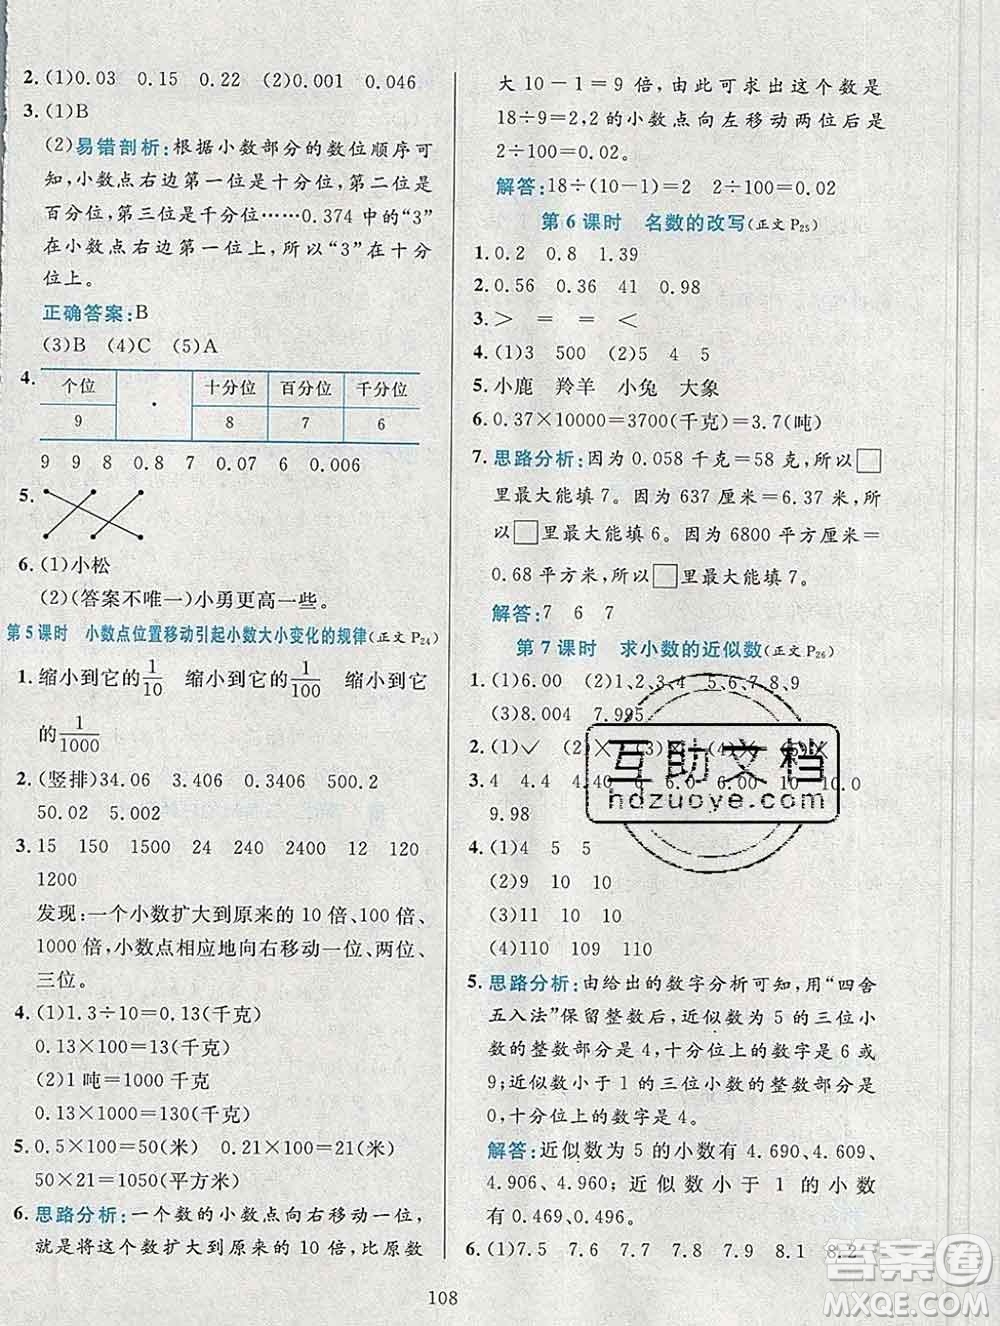 2. (1)0.03 0.15 0.22 (2)0.001 0.046
3. (1)B
(2)易错剖析:根据小数部分的数位顺序可
知,小数点右边第一位是十分位,第二位是
百分位,第三位是千分位……0.374 中的“3”
在小数点右边第一位上,所以“3”在十分
位上。
正确答案:B
(3)B (4)C (5)A
4.
个位 · 十分位 百分位 千分位
9 8 7 6
9 9 8 0.8 7 0.07 6 0.006
5.
6. (1)小松
(2)(答案不唯一)小勇更高一些。
第 5 课时 小数点位置移动引起小数大小变化的规律(正文 P24)
1. 缩小到它的1/10 缩小到它的1/100 缩小到它
的1/1000
2. (竖排)34.06 3.406 0.3406 500.2
50.02 5.002
3. 15 150 1500 24 240 2400 12 120
1200
发现:一个小数扩大到原来的 10 倍、100 倍、
1000 倍,小数点相应地向右移动一位、两位、
三位。
4. (1)1.3÷10=0.13(千克)
0.13×100=13(千克)
(2)1 吨=1000 千克
0.13×1000=130(千克)
5. 0.5×100=50(米) 0.21×100=21(米)
50×21=1050(平方米)
6. 思路分析:一个数的小数点向右移动一位,
就是将这个数扩大到原来的 10 倍,比原数
大 10-1=9 倍,由此可求出这个数是
18÷9=2,2的小数点向左移动两位后是
2÷100=0.02。
解答:18÷(10-1)=2 2÷100=0.02
第 6 课时 名数的改写(正文 P25)
1. 0.2 0.8 1.39
2. 0.56 0.36 41 0.98
3. > = = <
4. (1)3 500 (2)5 400
5. 小鹿 羚羊 小兔 大象
6. 0.37×10000=3700(千克)=3.7(吨)
7. 思路分析:因为 0.058 千克=58 克,所以□
里最大能填 7。因为 637 厘米=6.37 米,所
以□里最大能填 6。因为 6800 平方厘米=
0.68 平方米,所以□里最大能填 7。
解答:7 6 7
第 7 课时 求小数的近似数(正文 P26)
1. (1)6.00 (2)1、2、3、4 5、6、7、8、9
(3)8.004 7.995
2. (1)✓ (2)× (3)× (4)× (5)×
3. 4 4.4 4.40 6 6.0 6.00 10 10.0
9.98
4. (1)4 5 5
(2)9 10 10
(3)11 10 10
(4)110 109 110
5. 思路分析:由给出的数字分析可知,用“四舍
五入法”保留整数后,近似数为 5 的三位小
数的整数部分是 4,十分位上的数字是 6 或
9;近似数小于 1 的三位小数的整数部分是
0,十分位上的数字是 4。
解答:近似数为 5 的小数有 4.690、4.609、
4.906、4.960;近似数小于 1 的小数
有 0.469、0.496。
6. (1)7.5 7.6 7.7 7.8 7.9 8.1 8.2
108
互助文档
hdzuoye.com
答案圈
MXQE.COM